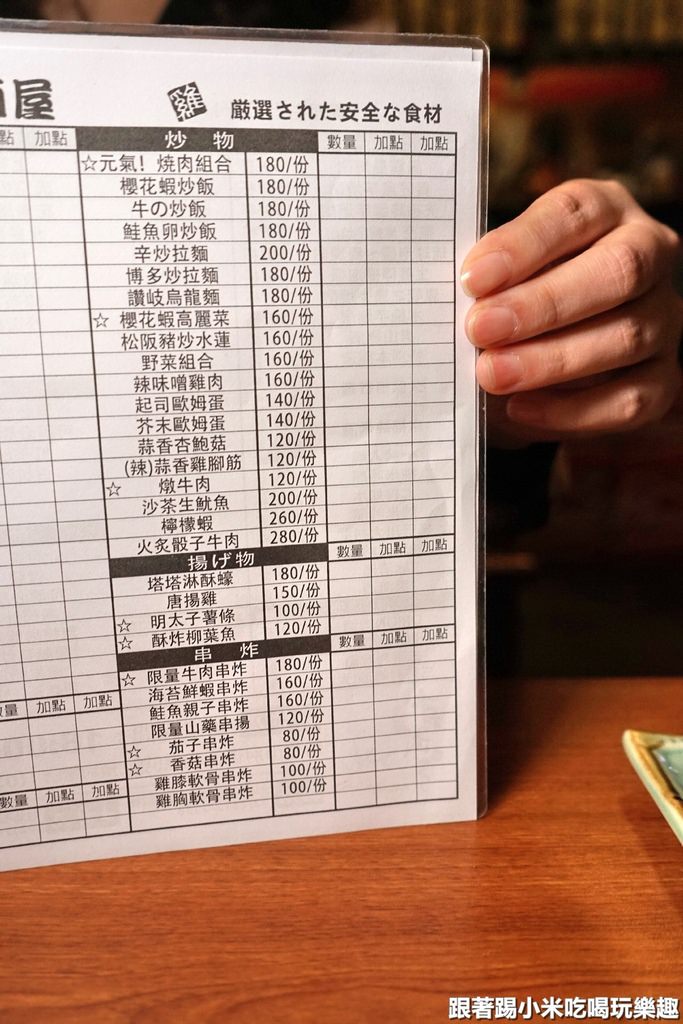 屋 雞 厳選された安全な食材
點 加點 炒物 數量 加點 加點
☆元氣！燒肉組合 180/份
櫻花蝦炒飯 180/份
牛の炒飯 180/份
鮭魚卵炒飯 180/份
辛炒拉麵 200/份
博多炒拉麵 180/份
讚岐烏龍麵 180/份
☆ 櫻花蝦高麗菜 160/份
松阪豬炒水蓮 160/份
野菜組合 160/份
辣味噌雞肉 160/份
起司歐姆蛋 140/份
芥末歐姆蛋 140/份
蒜香杏鮑菇 120/份
(辣)蒜香雞腳筋 120/份
☆ 燉牛肉 120/份
沙茶生魷魚 200/份
檸檬蝦 260/份
火炙骰子牛肉 280/份
揚げ物 數量 加點 加點
塔塔淋酥蠔 180/份
唐揚雞 150/份
☆ 明太子薯條 100/份
☆ 酥炸柳葉魚 120/份
串炸 數量 加點 加點
☆ 限量牛肉串炸 180/份
海苔鮮蝦串炸 160/份
鮭魚親子串炸 160/份
限量山藥串揚 120/份
☆ 茄子串炸 80/份
☆ 香菇串炸 80/份
雞膝軟骨串炸 100/份
雞胸軟骨串炸 100/份
數量 加點 加點
數量 加點 加點
跟著踢小米吃喝玩樂趣